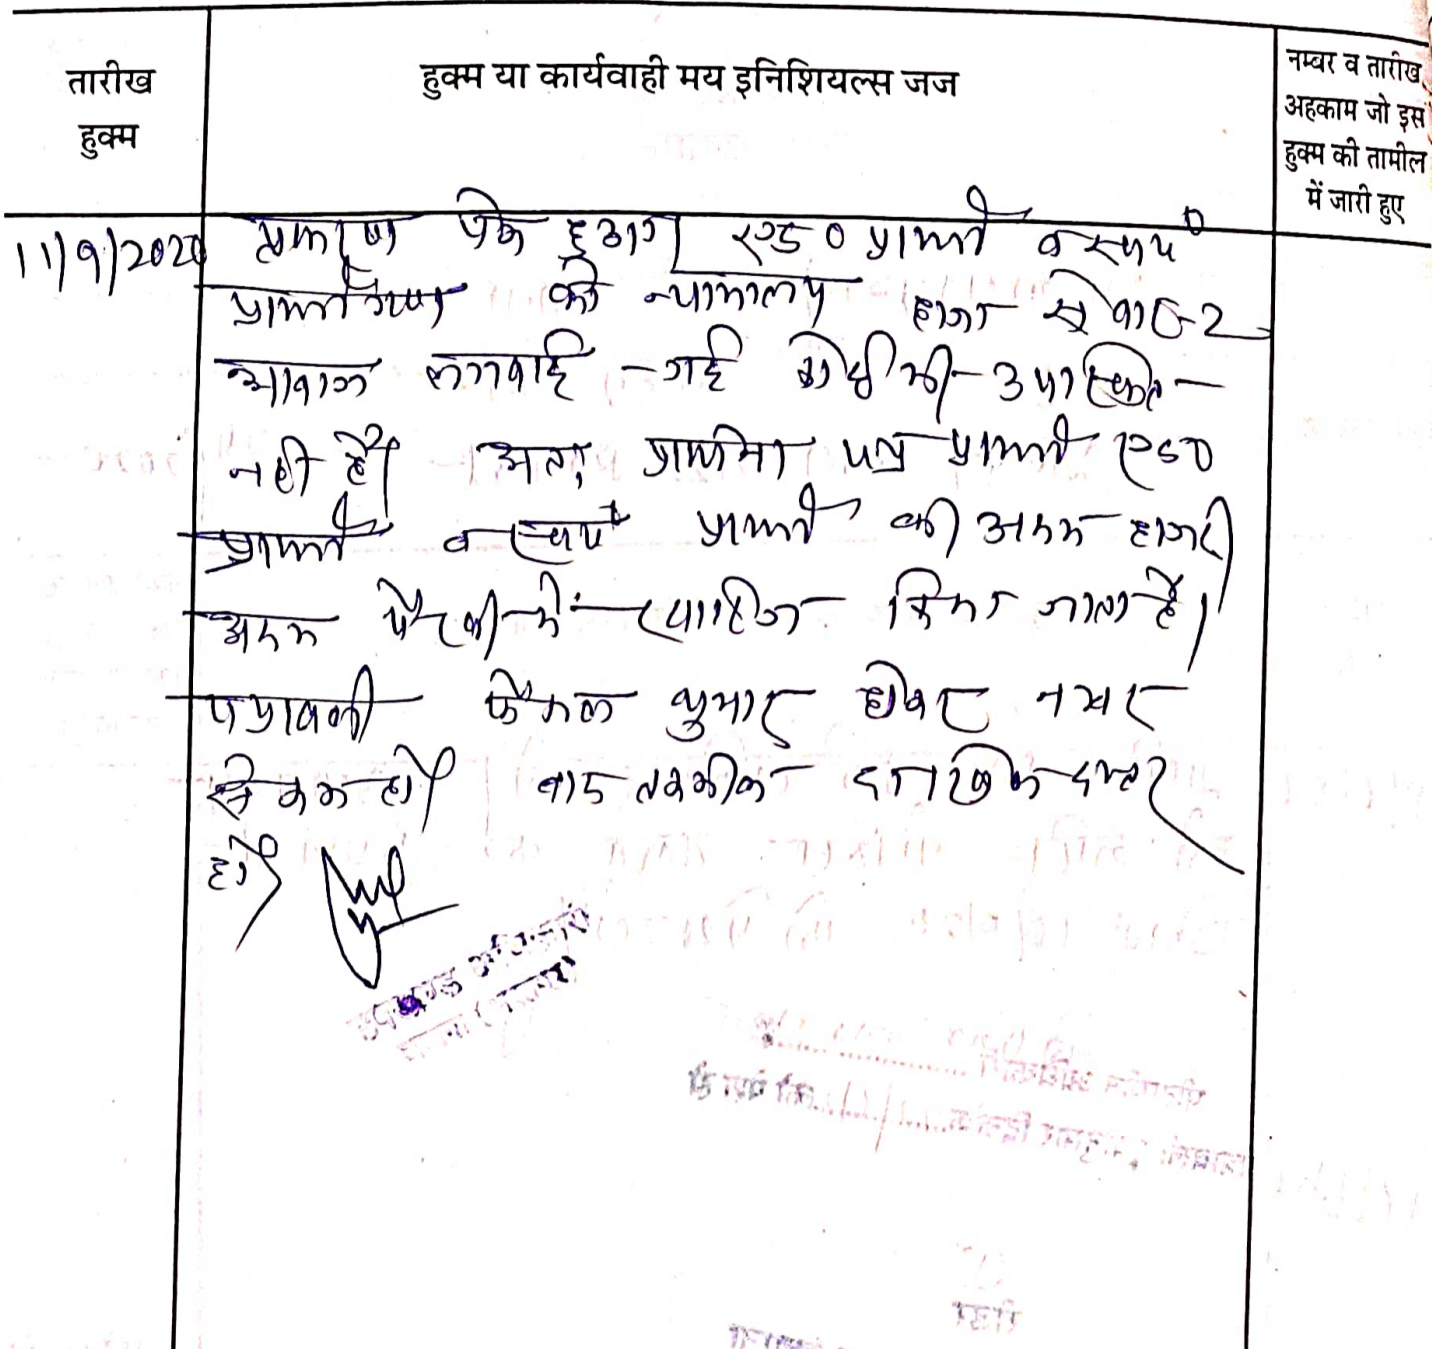 तारीख
हुक्म
हुक्म या कार्यवाही मय इनिशियल्स जज
नम्बर व तारीख
अहकाम जो इस
हुक्म की तामील
में जारी हुए
11/9/2020 प्रकरण पेश हुआ। एड० प्रार्थी व स्वयं
प्रार्थीगण को न्यायालय हाजा से बार-2
आवाज लगवाई गई कोई भी उपस्थित
नही है। अतः प्रार्थना पत्र प्रार्थी एड०
प्रार्थी व स्वयं प्रार्थी की अदम हाजरी
अदम पैरवी में खारिज किया जाता है।
पत्रावली फैसल शुमार होकर नम्बर
से कम हो। बाद तकमील दाखिल दफ्तर
हो।
उपखण्ड अधिकारी